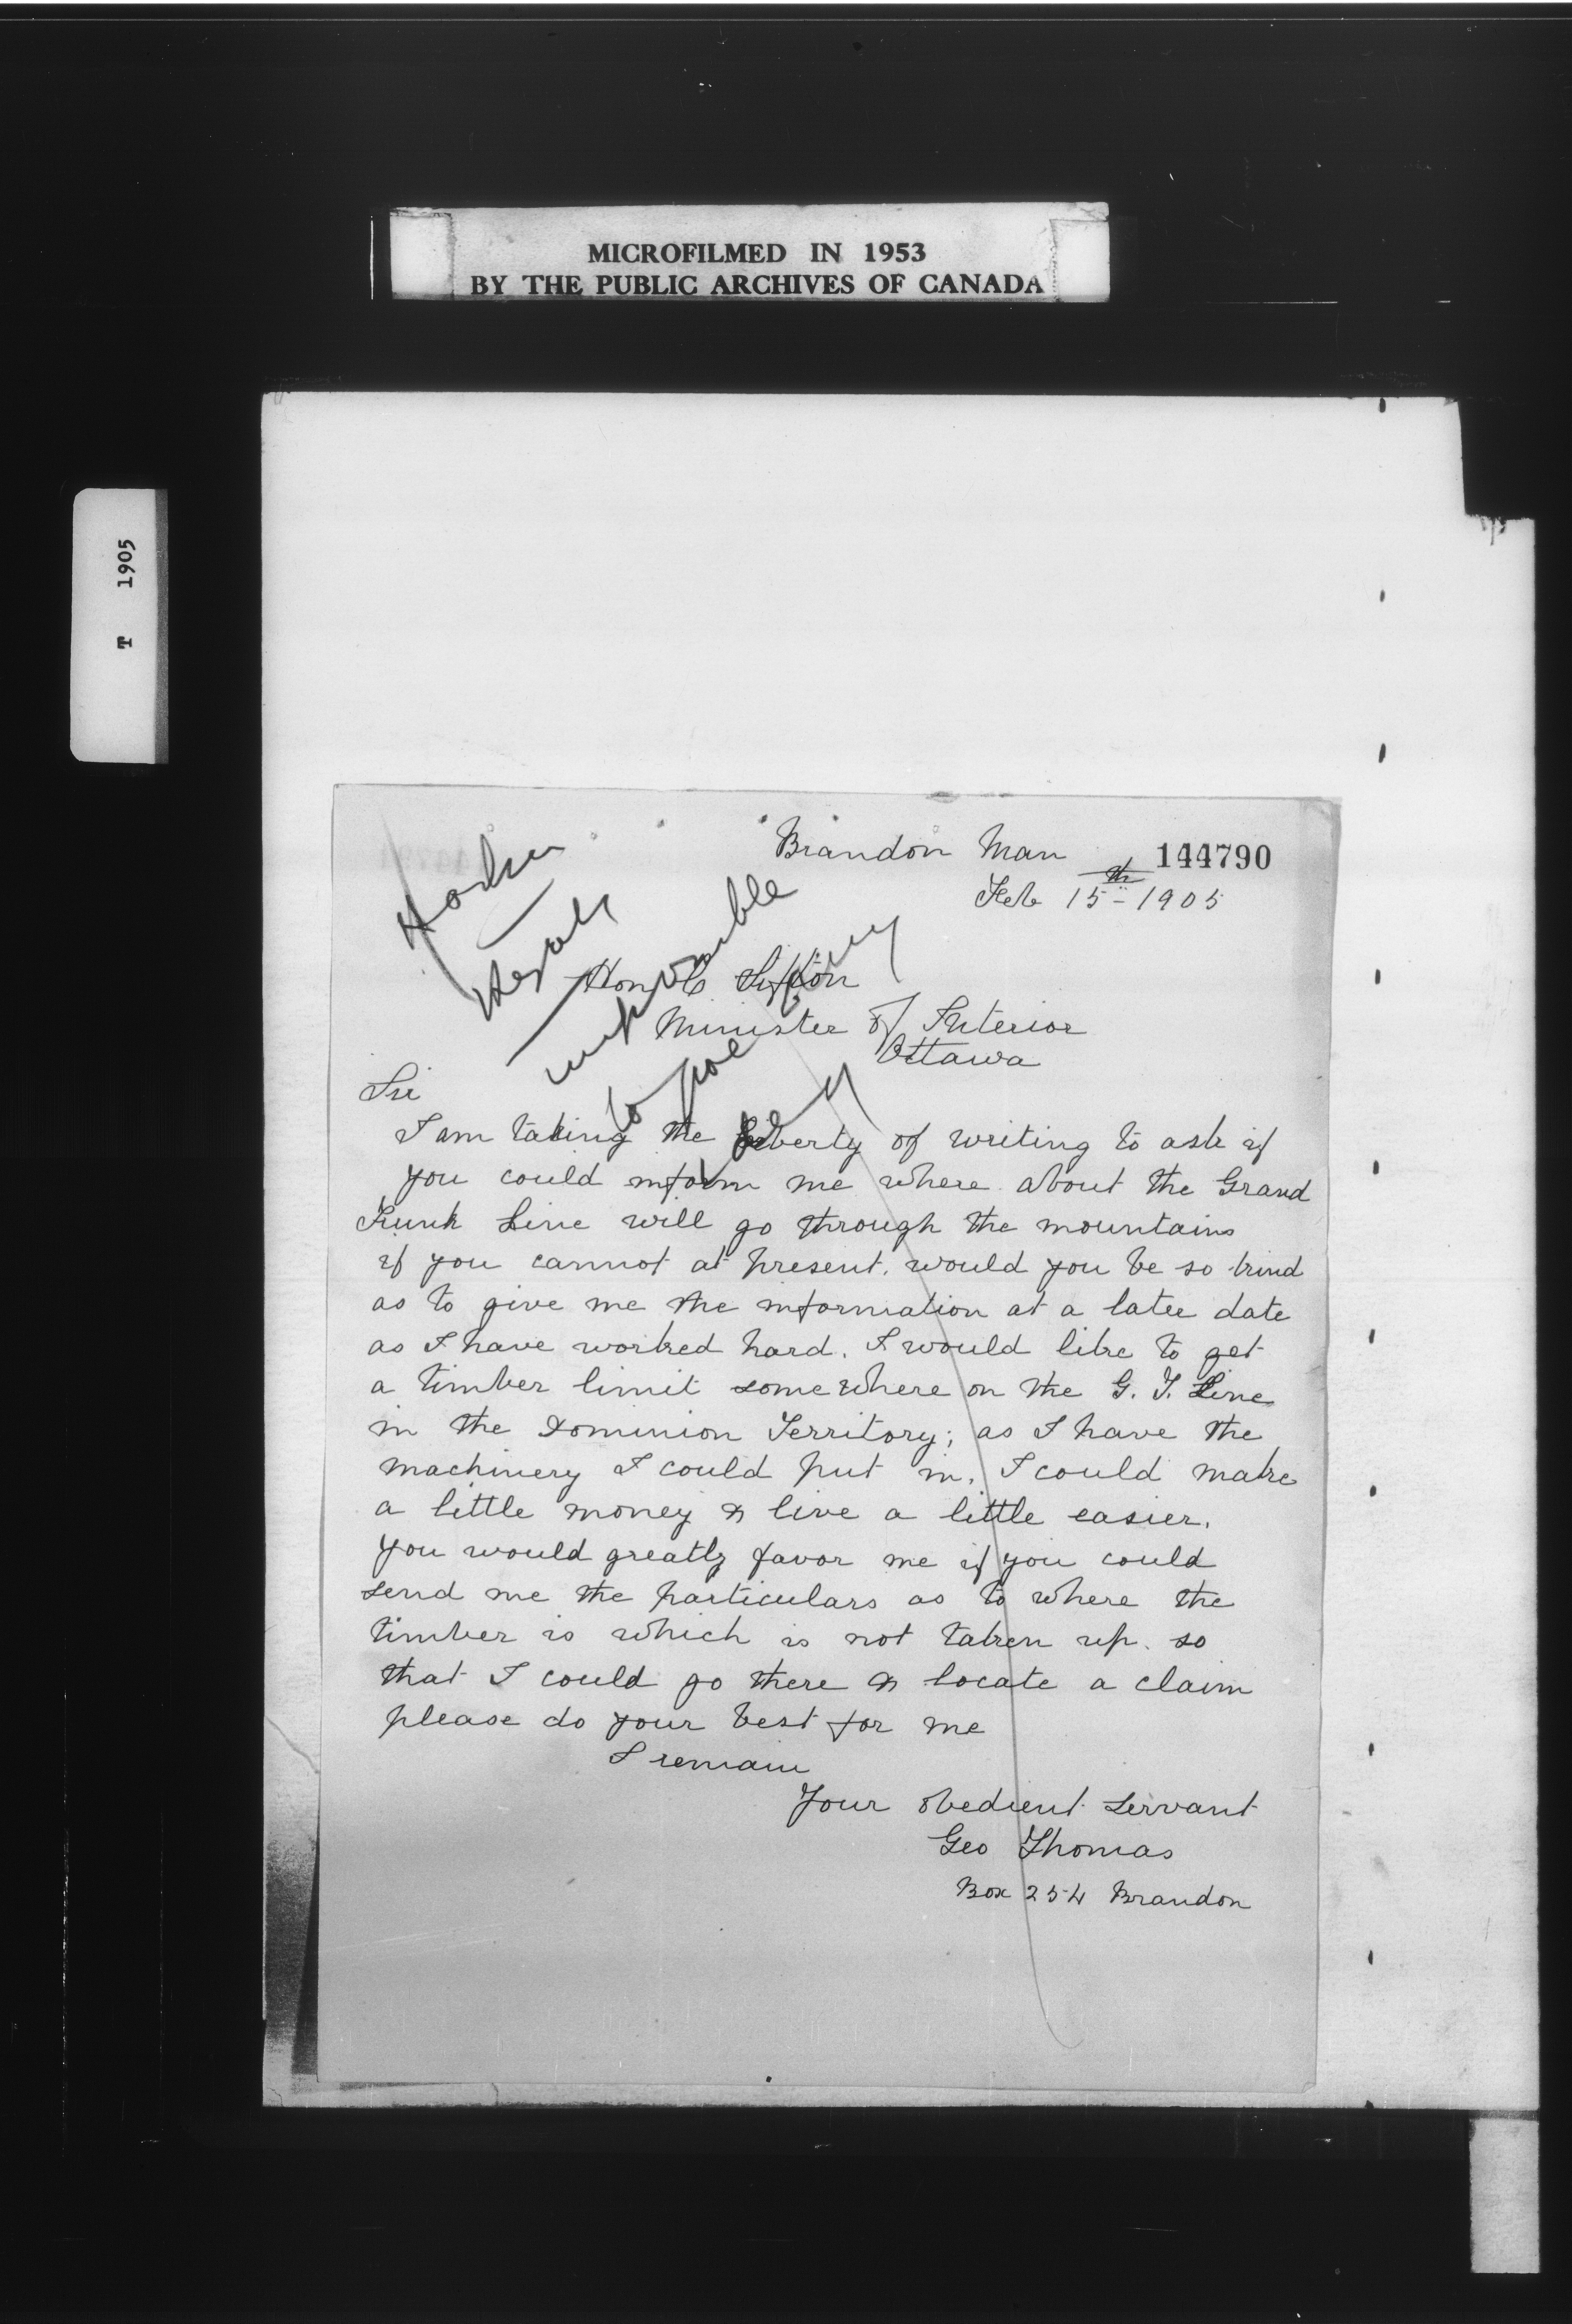 MICROFILMED IN 1953
BY THE PUBLIC ARCHIVES OF CANADA
T 1905
144790
Brandon Man
Feb 15th 1905
Hon C Sifton
Minister of Interior
Ottawa
impossible
to
Sir
I am taking the liberty of writing to ask if
you could inform me where about the Grand
Trunk Line will go through the mountains
if you cannot at present. would you be so kind
as to give me the information at a later date
as I have worked hard. I would like to get
a timber limit somewhere on the G. T. Line
in the Dominion Territory; as I have the
machinery I could put in. I could make
a little money & live a little easier.
you would greatly favor me if you could
send me the particulars as to where the
timber is which is not taken up. so
that I could go there & locate a claim
please do your best for me
I remain
Your obedient servant
Geo Thomas
Box 254 Brandon